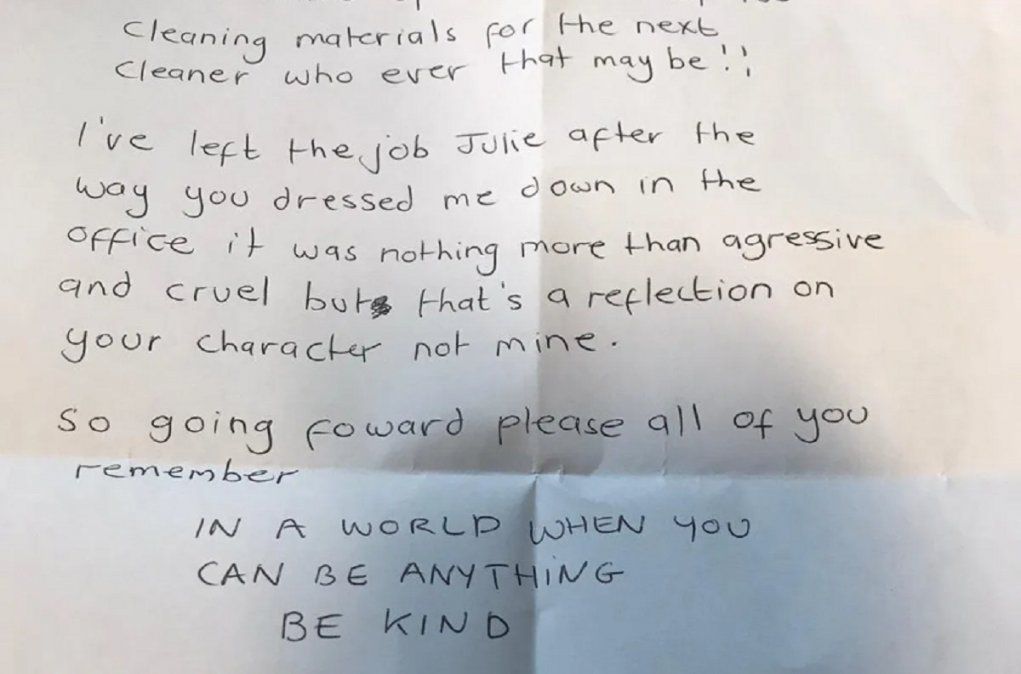 Cleaning materials for the next
Cleaner who ever that may be!!
I've left the job Julie after the
way you dressed me down in the
office it was nothing more than agressive
and cruel but that's a reflection on
your character not mine.
So going foward please all of you
remember
IN A WORLD WHEN YOU
CAN BE ANYTHING
BE KIND